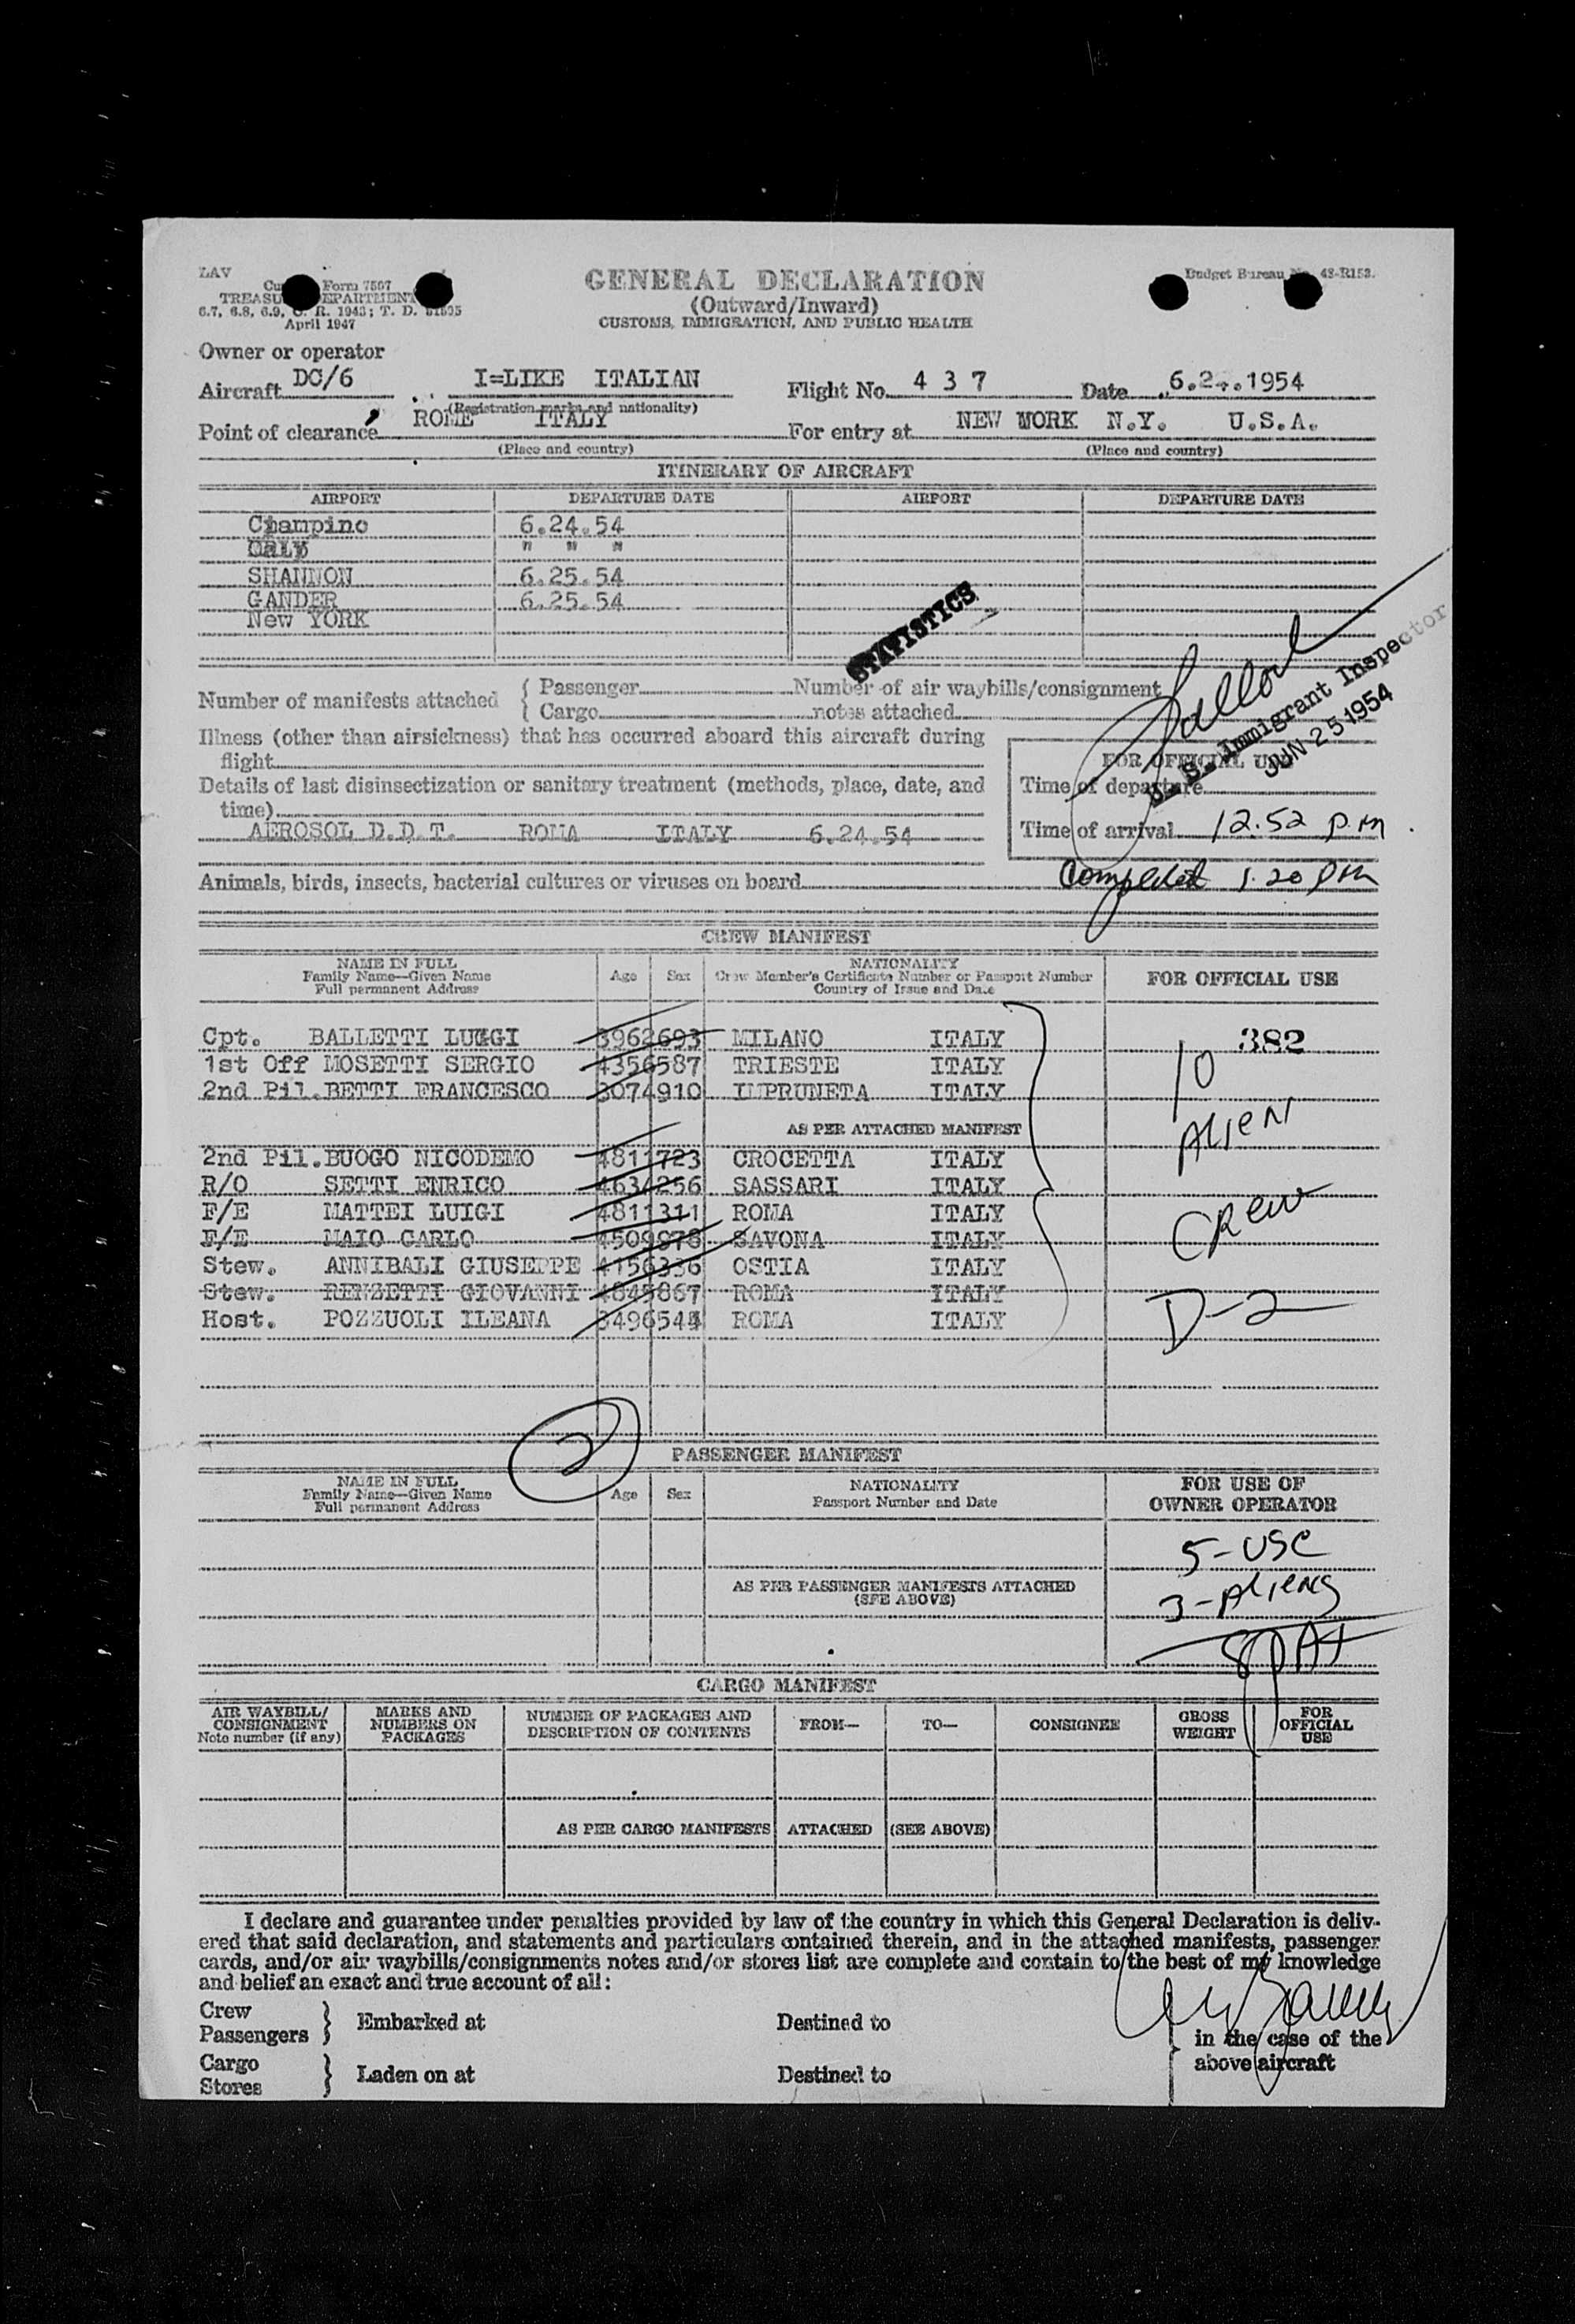 LAV
Form 7507
Budget Bureau No. 48-R153.
GENERAL DECLARATION
(Outward/Inward)
CUSTOMS, IMMIGRATION, AND PUBLIC HEALTH
6.7, 6.8, 6.9, C. R. 1943; T. D. 51505
April 1947
Owner or operator
Aircraft DC/6 I=LIKE ITALIAN Flight No. 4 3 7 Date 6.2 .1954
(Registration marks and nationality)
Point of clearance ROME ITALY For entry at NEW YORK N.Y. U.S.A.
(Place and country) (Place and country)
ITINERARY OF AIRCRAFT
AIRPORT DEPARTURE DATE AIRPORT DEPARTURE DATE
Ciampino 6.24.54
ORLY " " "
SHANNON 6.25.54
GANDER 6.25.54
New YORK
STATISTICS
U. S. Immigrant Inspector
JUN 25 1954
Number of manifests attached { Passenger Number of air waybills/consignment
{ Cargo notes attached
Illness (other than airsickness) that has occurred aboard this aircraft during
flight
FOR OFFICIAL USE
Details of last disinsectization or sanitary treatment (methods, place, date, and
time)
Time of departure
AEROSOL D.D.T. ROMA ITALY 6.24.54
Time of arrival 12.52 p.m
Animals, birds, insects, bacterial cultures or viruses on board
Completed 1.20 PM
CREW MANIFEST
NAME IN FULL
Family Name—Given Name
Full permanent Address
Age Sex
NATIONALITY
Crew Member's Certificate Number or Passport Number
Country of Issue and Date
FOR OFFICIAL USE
Cpt. BALLETTI LUIGI 3962693 MILANO ITALY
1st Off MOSETTI SERGIO 4356587 TRIESTE ITALY
2nd Pil.BETTI FRANCESCO 3074910 IMPRUNETA ITALY
AS PER ATTACHED MANIFEST
2nd Pil.BUOGO NICODEMO 4811723 CROCETTA ITALY
R/O SETTI ENRICO 4634256 SASSARI ITALY
F/E MATTEI LUIGI 4811311 ROMA ITALY
F/E MAIO CARLO 4509878 SAVONA ITALY
Stew. ANNIBALI GIUSEPPE 4156336 OSTIA ITALY
Stew. RENZETTI GIOVANNI 4845867 ROMA ITALY
Host. POZZUOLI ILEANA 3496544 ROMA ITALY
382
10
ALIEN
CREW
D-2
2
PASSENGER MANIFEST
NAME IN FULL
Family Name—Given Name
Full permanent Address
Age Sex
NATIONALITY
Passport Number and Date
FOR USE OF
OWNER OPERATOR
5-USC
AS PER PASSENGER MANIFESTS ATTACHED
(SEE ABOVE)
3-Aliens
8
CARGO MANIFEST
AIR WAYBILL/
CONSIGNMENT
Note number (if any)
MARKS AND
NUMBERS ON
PACKAGES
NUMBER OF PACKAGES AND
DESCRIPTION OF CONTENTS
FROM—
TO—
CONSIGNEE
GROSS
WEIGHT
FOR
OFFICIAL
USE
AS PER CARGO MANIFESTS ATTACHED (SEE ABOVE)
I declare and guarantee under penalties provided by law of the country in which this General Declaration is deliv-
ered that said declaration, and statements and particulars contained therein, and in the attached manifests, passenger
cards, and/or air waybills/consignments notes and/or stores list are complete and contain to the best of my knowledge
and belief an exact and true account of all:
Crew
Passengers } Embarked at Destined to
in the case of the
above aircraft
Cargo
Stores } Laden on at Destined to